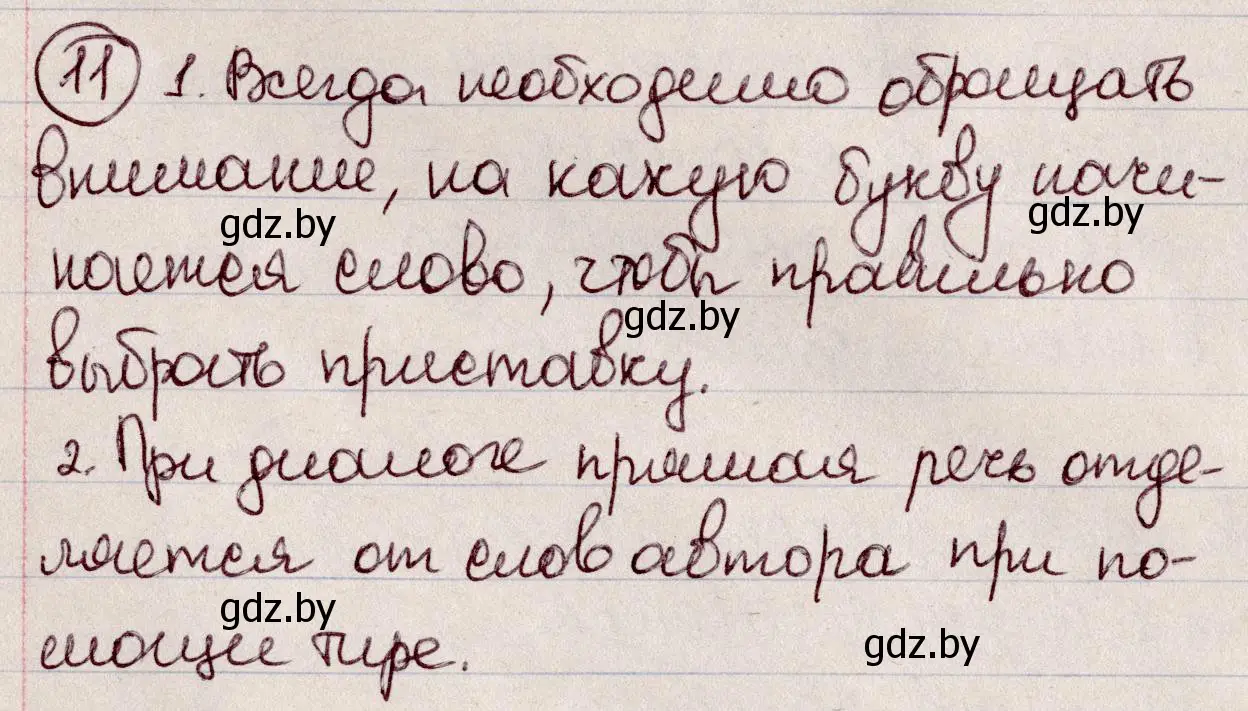 11 1. Всегда необходимо обращать
внимание, на какую букву начи-
gdz.by gdz.by
нается слово, чтобы правильно
gdz.by
выбрать приставку.
2. При диалоге прямая речь отде-
ляется от слов автора при по-
gdz.by
мощи тире.
gdz.by